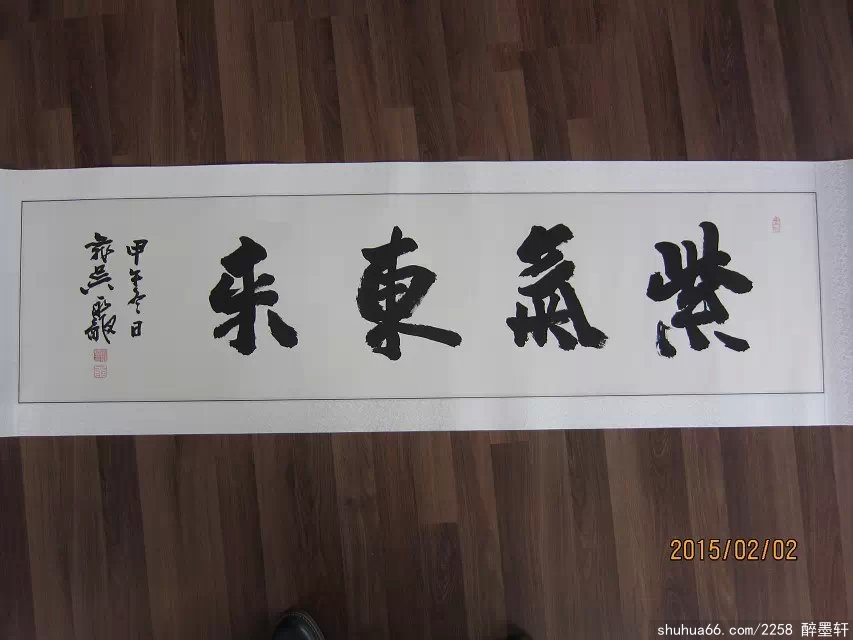 紫氣東来
甲午冬日
2015/02/02
shuhua66.com/2258 醉墨轩